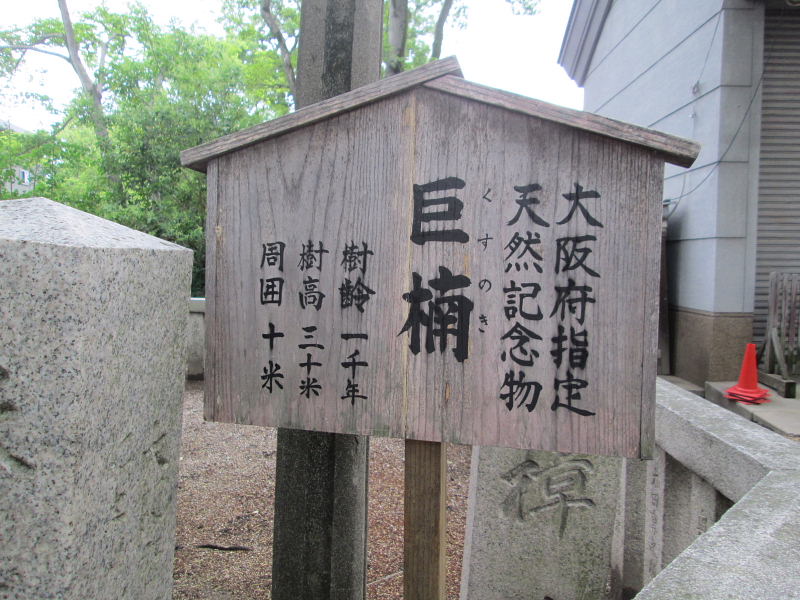 大阪府指定
天然記念物
くすのき
巨楠
樹齢 一千年
樹高 三十米
周囲 十米